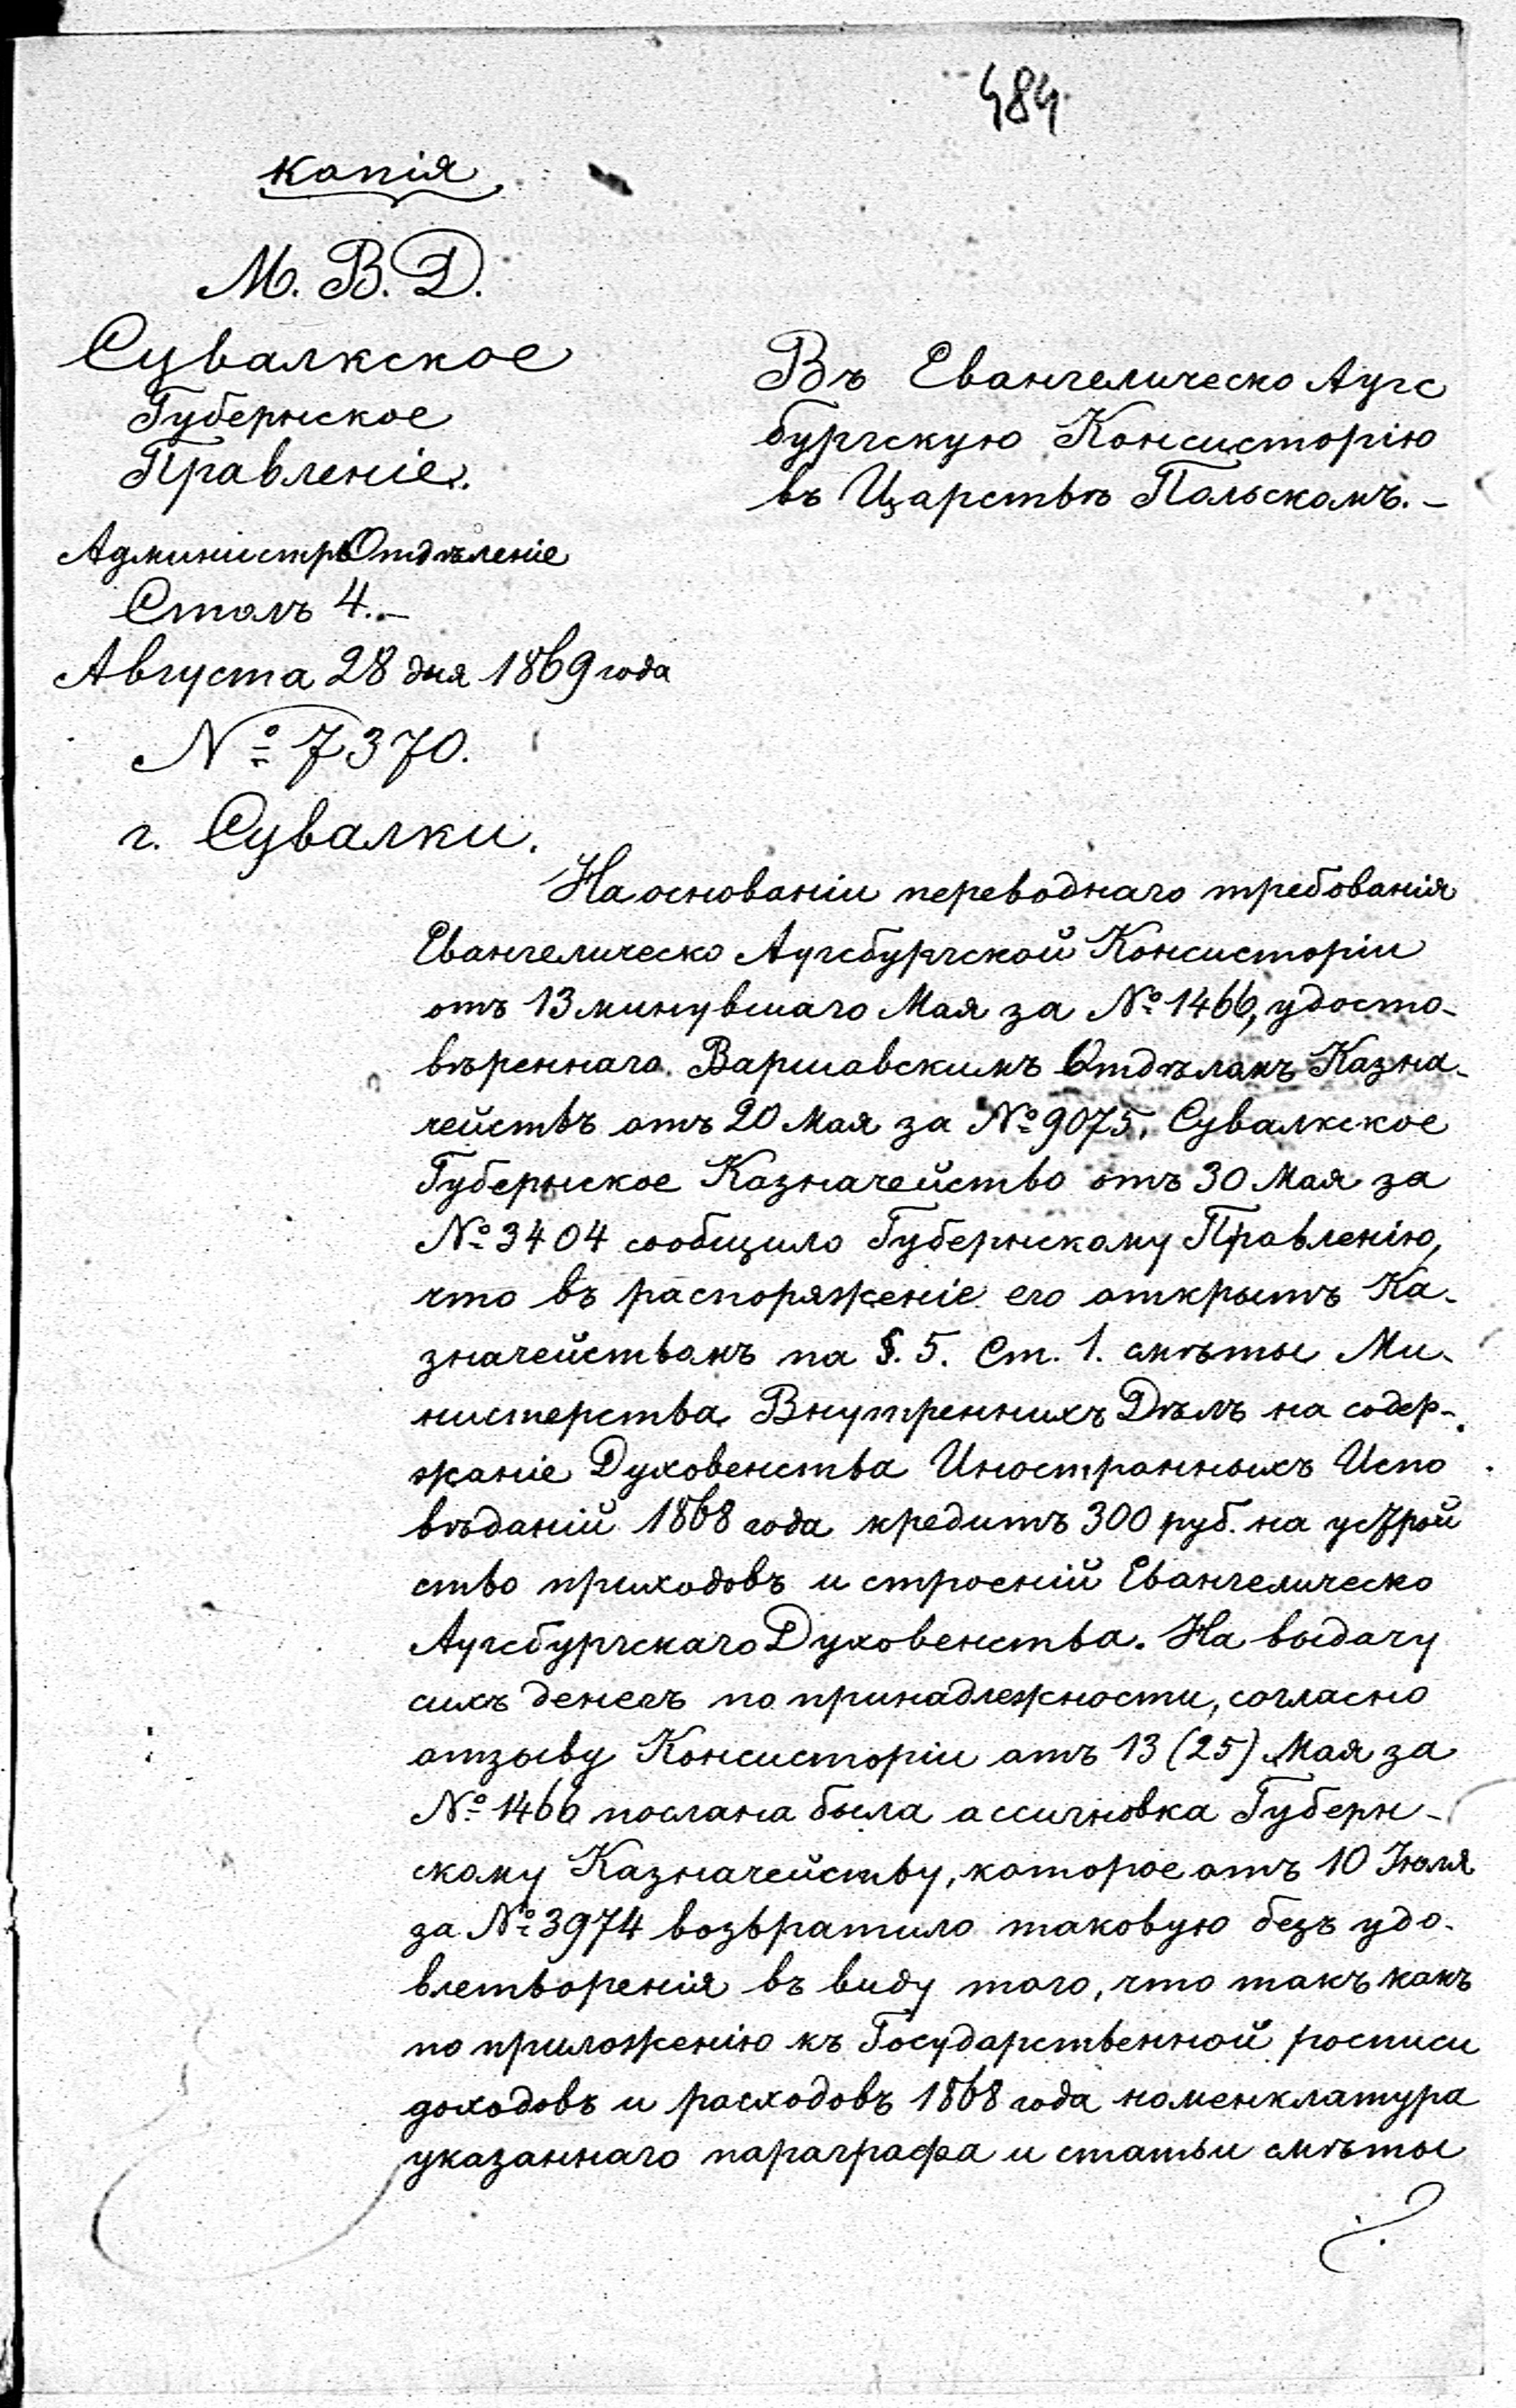 484
Копія
М. В. Д.
Сувалкское
Губернское
Правленіе.
Администр Отдѣленіе
Столъ 4.-
Августа 28 дня 1869 года
№ 7370.
г. Сувалки.
Въ Евангелическо Аугс
бургскую Консисторію
въ Царствѣ Польскомъ.-
На основаніи переводнаго требованія
Евангелическо Аугсбургской Консисторіи
отъ 13 минувшаго Мая за № 1466, удосто-
вѣреннаго Варшавскимъ Отдѣломъ Казна-
чействъ отъ 20 Мая за № 9075, Сувалкское
Губернское Казначейство отъ 30 Мая за
№ 3404 сообщило Губернскому Правленію,
что въ распоряженіе его открытъ Ка-
значействомъ по §. 5. Ст. 1. смѣты Ми-
нистерства Внутреннихъ Дѣлъ на содер-
жаніе Духовенства Иностранныхъ Испо
вѣданій 1868 года кредитъ 300 руб. на устрой
ство приходовъ и строеній Евангелическо
Аугсбургскаго Духовенства. На выдачу
сихъ денегъ по принадлежности, согласно
отзыву Консисторіи отъ 13 (25) Мая за
№ 1466 послана была ассигновка Губерн-
скому Казначейству, которое отъ 10 Іюля
за № 3974 возвратило таковую безъ удо-
влетворенія въ виду того, что такъ какъ
по приложенію къ Государственной росписи
доходовъ и расходовъ 1868 года номенклатура
указаннаго параграфа и статьи смѣты